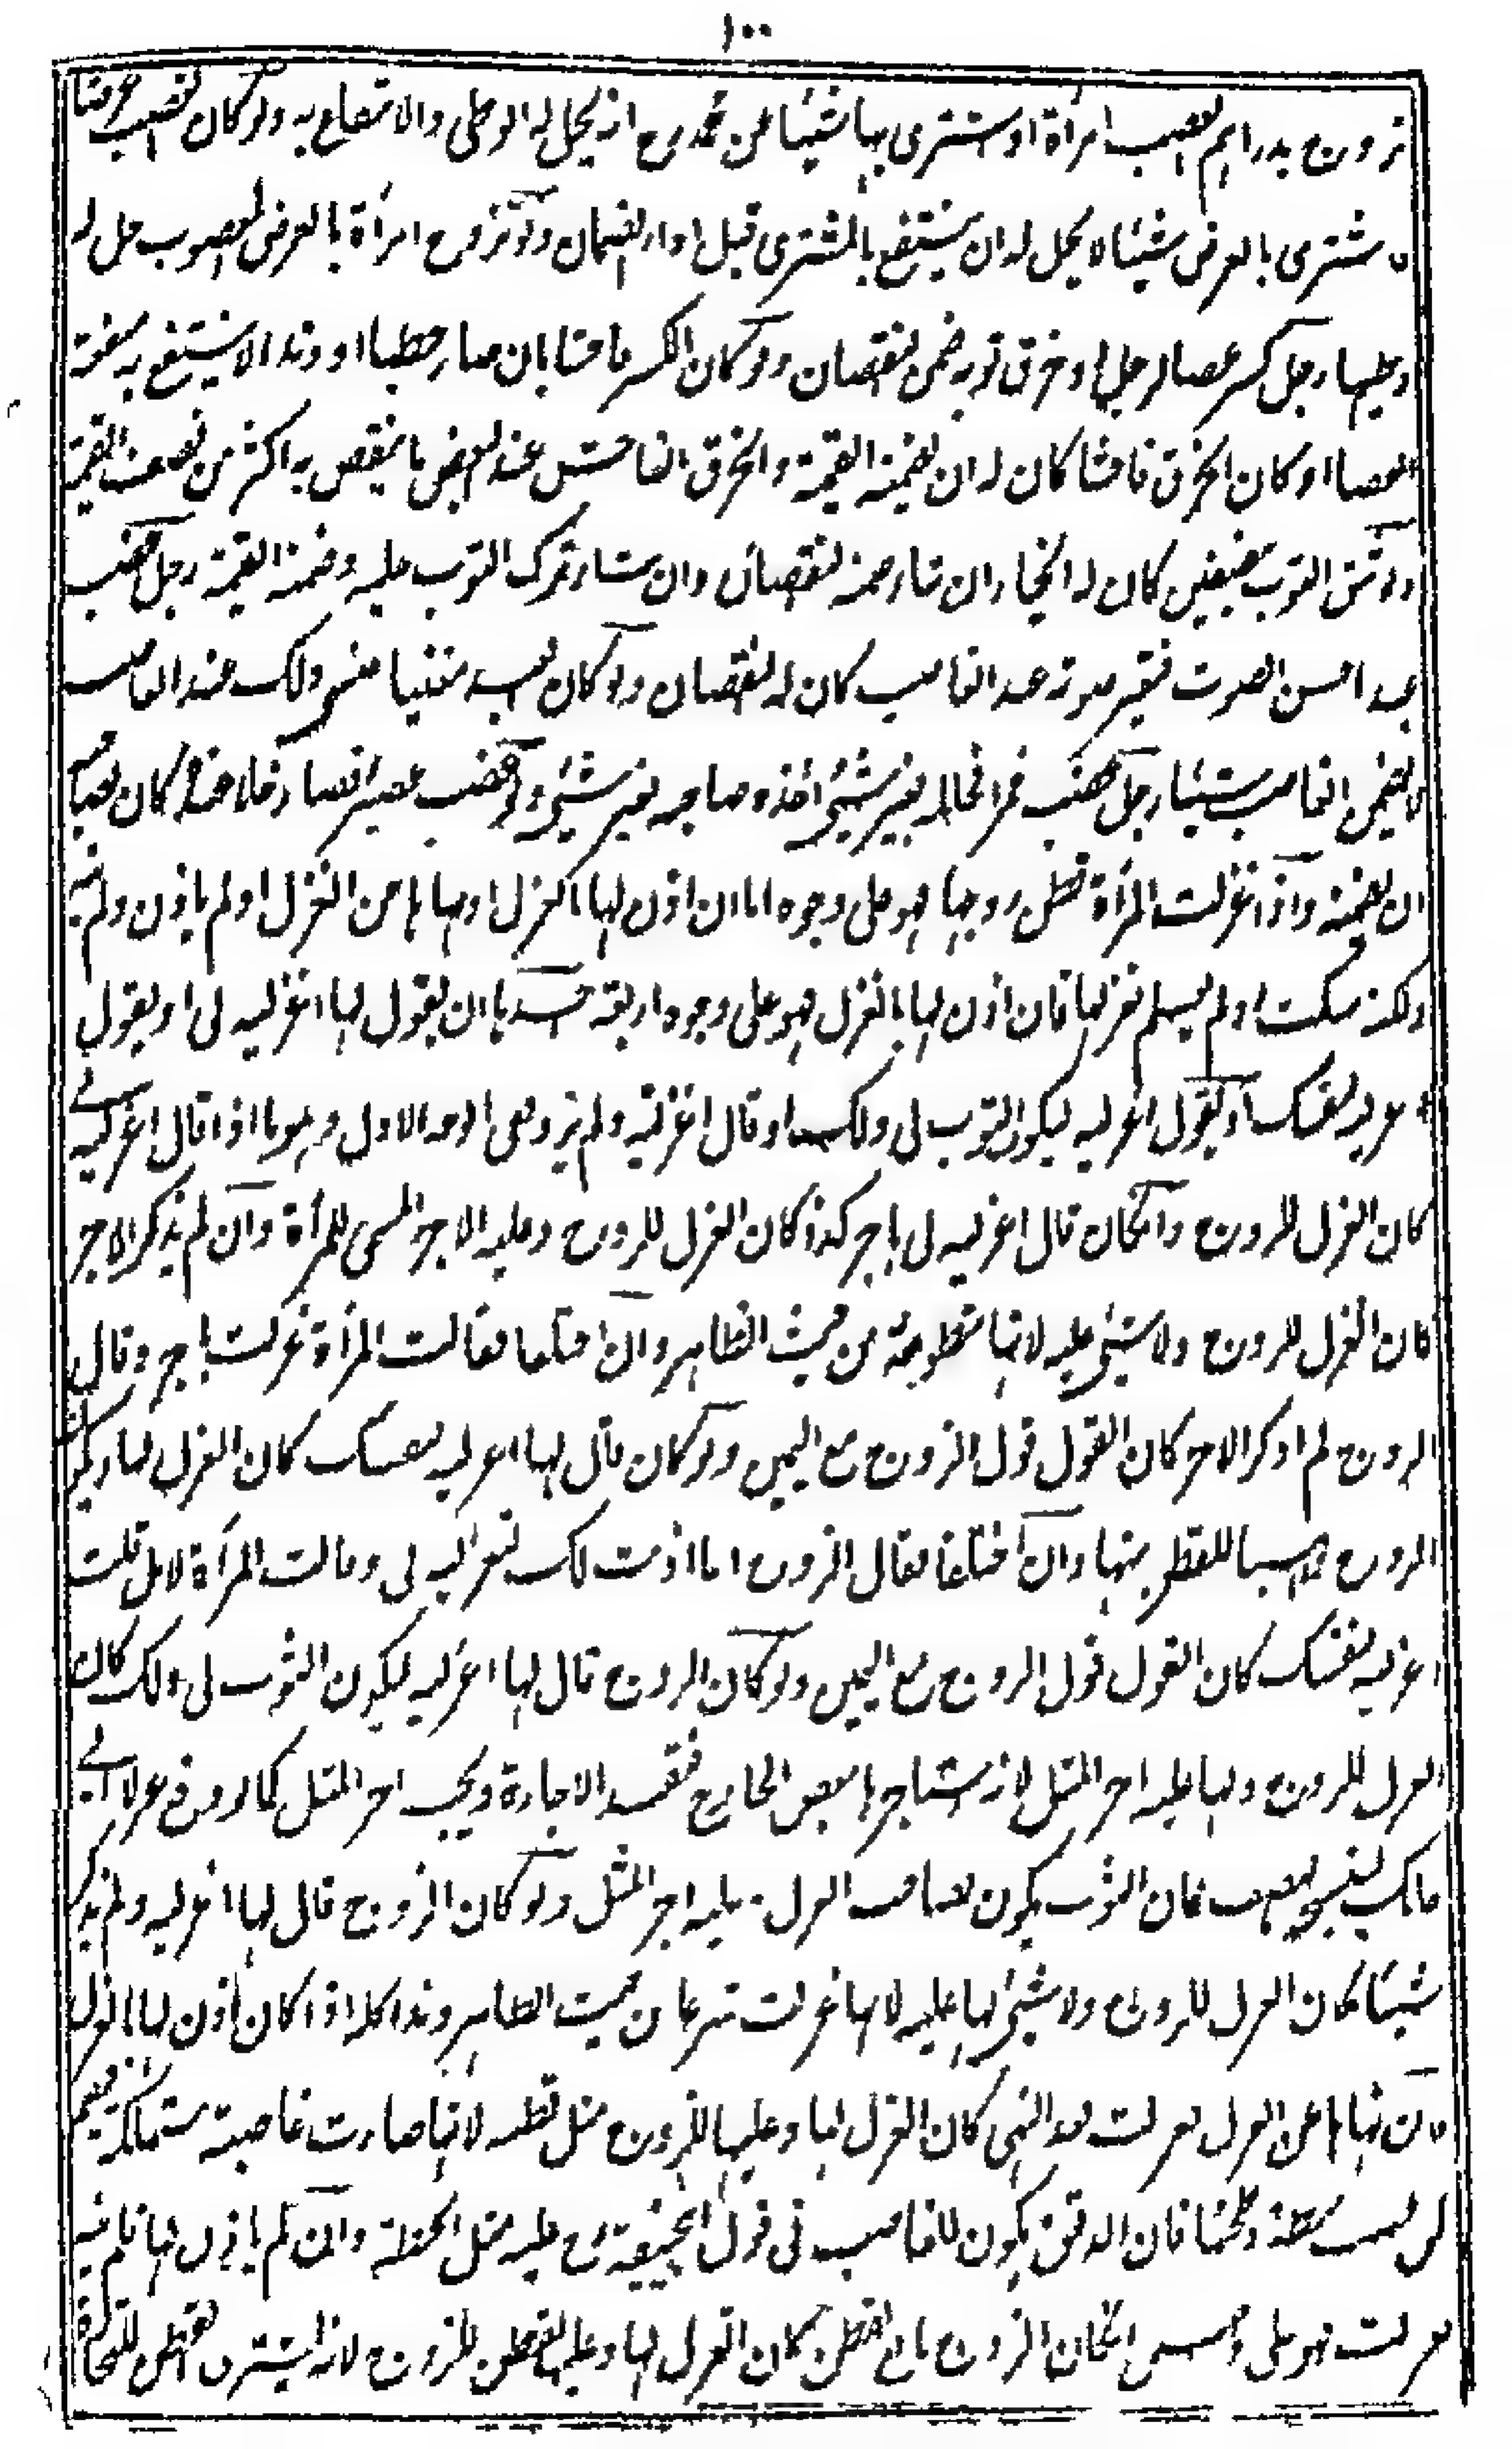 ١٠٠
تزوج بدراهم الغصب امرأة او اشترى بها شيئا عن محمد رح انه يحل له الوطى والانتفاع به ولو كان الغصب عرضا
شترى بالعرض شيئا لا يحل له ان ينتفع بالمشترى قبل اداء الضمان ولو تزوج امرأة بالعرض المغصوب حل له
وطيها رجل كسر عصا لرجل او خرق ثوبه ضمن النقصان ولو كان الكسر فاحشا بان صار حطبا او وتدا لا ينتفع به منفعة
العصا او كان الخرق فاحشا كان له ان يضمنه القيمة والخرق الفاحش عند البعض ما ينقص به اكثر من نصف القيمة
ولو شق الثوب نصفين كان له الخيار ان شاء ضمنه النقصان وان شاء ترك الثوب عليه وضمنه القيمة رجل غصب
عبدا حسن الصوت فتغير صوته عند الغاصب كان له النقصان ولو كان العبد مغنيا فنسى ذلك عند الغاصب
لا يضمن الغاصب شيئا رجل غصب خمرا فخللها بغير شيئ اخذه صاحبه بغير شيئ ولو غصب عصيرا فصار خلا عنده كان لصاحبه
ان يضمنه واذا غزلت المرأة قطن زوجها فهو على وجوه اما ان اذن لها بالغزل او نهاها من الغزل او لم ياذن ولم ينه
ولكنه سكت او لم يعلم بغزلها فان اذن لها بالغزل فهو على وجوه اربعة احدها ان يقول لها اغزليه لى او يقول
اغزليه لنفسك او يقول اغزليه ليكون الثوب لى ولك او قال اغزليه ولم يزد ففى الوجه الاول وهو ما اذا قال اغزليه لى
كان الغزل للزوج وان كان قال اغزليه لى باجر كذا كان الغزل للزوج وعليه الاجر المسمى للمرأة وان لم يذكر الاجر
كان الغزل للزوج ولا شيئ عليه لانها متطوعة من حيث الظاهر وان اختلفا فقالت المرأة غزلت باجر وقال
الزوج لم اذكر الاجر كان القول قول الزوج مع اليمين ولو كان قال لها اغزليه لنفسك كان الغزل لها ويكون
الزوج واهبا للقطن منها وان اختلفا فقال الزوج انما اذنت لك لتغزليه لى وقالت المرأة لا بل قلت
اغزليه لنفسك كان القول قول الزوج مع اليمين ولو كان الزوج قال لها اغزليه ليكون الثوب لى ولك كان
الغزل للزوج ولها عليه اجر المثل لانه استاجرها ببعض الخارج فتفسد الاجارة ويجب اجر المثل كما لو دفع غزلا الى
حائك لينسجه بالنصف فان الثوب يكون لصاحب الغزل وعليه اجر المثل ولو كان الزوج قال لها اغزليه ولم يذكر
شيئا كان الغزل للزوج ولا شيئ لها عليه لانها غزلت تبرعا من حيث الظاهر وهذا كله اذا كان اذن لها بالغزل
فان نهاها عن الغزل فغزلت بعد النهى كان الغزل لها وعليها للزوج مثل قطنه لانها صارت غاصبة مستهلكة فيضمن
كمن غصب حنطة وطحنها فان الدقيق يكون للغاصب فى قول ابيحنيفة رح وعليه مثل الحنطة وان لم ياذن لها فلم ينه
فغزلت فهو على وجهين ان كان الزوج بائع القطن كان الغزل لها وعليها القطن للزوج لانه اشترى القطن للتجارة